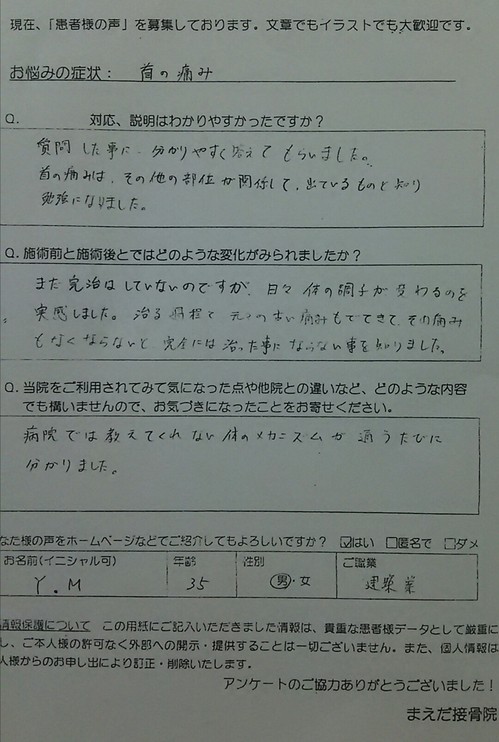 現在、「患者様の声」を募集しております。文章でもイラストでも大歓迎です。
お悩みの症状： 首の痛み
Q. 対応、説明はわかりやすかったですか？
質問した事に、分かりやすく答えてもらいました。
首の痛みは、その他の部位が関係して、出ているものと知り
勉強になりました。
Q. 施術前と施術後とではどのような変化がみられましたか？
まだ完治はしていないのですが、日々体の調子が変わるのを
実感しました。治る過程で元々の古い痛みもでてきて、その痛み
もなくならないと完全には治った事にならない事を知りました。
Q. 当院をご利用されてみて気になった点や他院との違いなど、どのような内容
でも構いませんので、お気づきになったことをお寄せください。
病院では教えてくれない体のメカニズムが通うたびに
分かりました。
なた様の声をホームページなどでご紹介してもよろしいですか？ ☑はい □匿名で □ダメ
お名前(イニシャル可) 年齢 性別 ご職業
Y.M 35 男・女 建築業
情報保護について この用紙にご記入いただきました情報は、貴重な患者様データとして厳重に
し、ご本人様の許可なく外部への開示・提供することは一切ございません。また、個人情報は
人様からのお申し出により訂正・削除いたします。
アンケートのご協力ありがとうございました！
まえだ接骨院